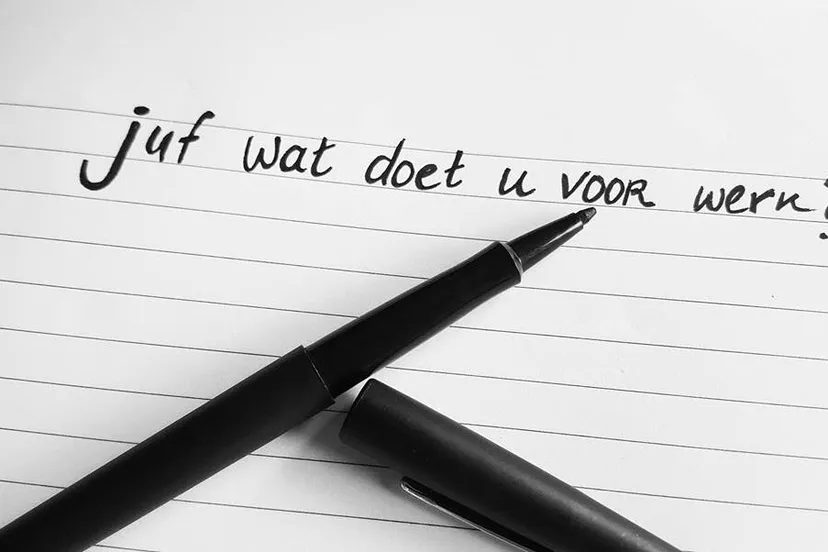 juf wat doet u voor werk?